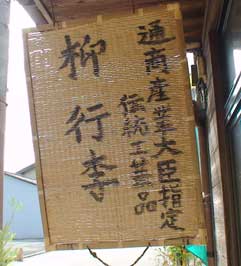 通商産業大臣指定
伝統工芸品
柳行李